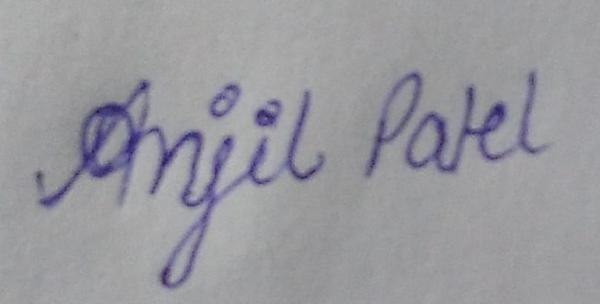 Anjil Patel